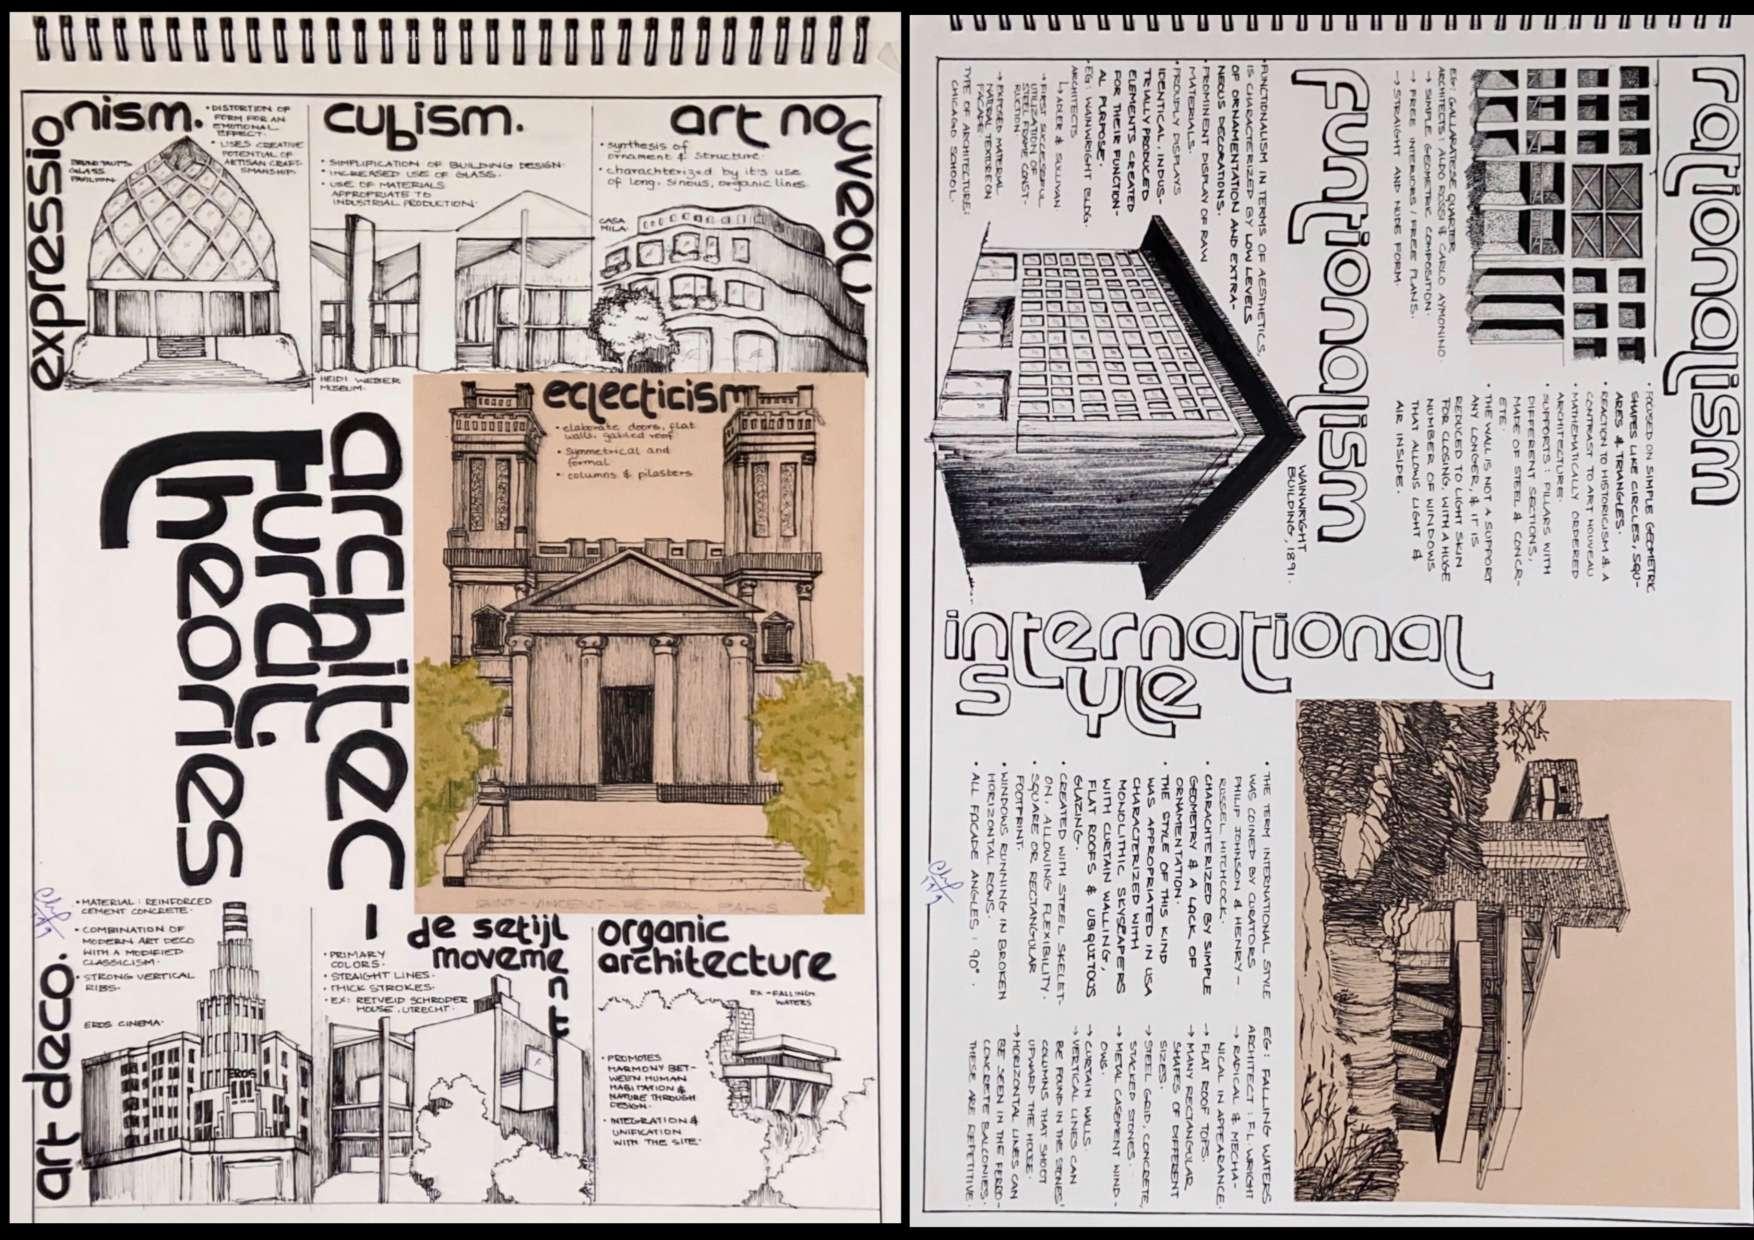 expressionism.
• DISTORTION OF
FORM FOR AN
EMOTIONAL
EFFECT.
• USES CREATIVE
POTENTIAL OF
ARTISAN CRAFT-
SMANSHIP.
BRUNO TAUT'S
GLASS
PAVILION.
cubism.
• SIMPLIFICATION OF BUILDING DESIGN.
• INCREASED USE OF GLASS.
• USE OF MATERIALS
APPROPRIATE TO
INDUSTRIAL PRODUCTION.
HEIDI WEBER
MUSEUM.
art nouveau
• synthesis of
ornament & structure.
• charachterized by it's use
of long, sinous, organic lines.
CASA
MILA.
eclecticism
• elaborate doors, flat
walls, gabled roof
• Symmetrical and
formal
• columns & pilasters
SAINT-VINCENT-DE-PAUL, PARIS
architec-
tural
theories
art deco.
• MATERIAL: REINFORCED
CEMENT CONCRETE.
• COMBINATION OF
MODERN ART DECO
WITH A MODIFIED
CLASSICISM.
• STRONG VERTICAL
RIBS.
EROS CINEMA.
EROS
de setijl
movement
• PRIMARY
COLORS.
• STRAIGHT LINES.
• THICK STROKES.
• EX: RETVEID SCHRODER
HOUSE, UTRECHT.
organic
architecture
EX - FALLING
WATERS
• PROMOTES
HARMONY BET-
WEEN HUMAN
HABITATION &
NATURE THROUGH
DESIGN.
• INTEGRATION &
UNIFICATION
WITH THE SITE.
rationalism
• FOCUSED ON SIMPLE GEOMETRIC
SHAPES LIKE CIRCLES, SQU-
ARES & TRIANGLES.
• REACTION TO HISTORICISM & A
CONTRAST TO ART NOUVEAU
• MATHEMATICALLY ORDERED
ARCHITECTURE.
• SUPPORTS: PILLARS WITH
DIFFERENT SECTIONS,
MADE OF STEEL & CONCR-
ETE.
• THE WALL IS NOT A SUPPORT
ANY LONGER, & IT IS
REDUCED TO LIGHT SKIN
FOR CLOSING, WITH A HUGE
NUMBER OF WINDOWS
THAT ALLOWS LIGHT &
AIR INSIDE.
EG: GALLARATESE QUARTER
ARCHITECTS: ALDO ROSSI & CARLO AYMONINO
→ SIMPLE GEOMETRIC COMPOSITION.
→ FREE INTERIORS / FREE PLANS.
→ STRAIGHT AND NUDE FORM.
funtionalism
• FUNCTIONALISM IN TERMS OF AESTHETICS,
IS CHARACTERIZED BY LOW LEVELS
OF ORNAMENTATION AND EXTRA-
NEOUS DECORATIONS.
• PROMINENT DISPLAY OF RAW
MATERIALS.
• PROUDLY DISPLAYS
IDENTICAL, INDUS-
TRIALLY PRODUCED
ELEMENTS CREATED
FOR THEIR FUNCTION-
AL PURPOSE.
• EG: WAINWRIGHT BLDG.
ARCHITECTS
↳ ADLER & SULLIVAN
→ FIRST SUCCESSFUL
UTILIZATION OF
STEEL FRAME CONST-
RUCTION
→ EXPOSED MATERIAL
NATURAL TEXTURE ON
FACADE
TYPE OF ARCHITECTURE:
CHICAGO SCHOOL.
WAINWRIGHT
BUILDING, 1891.
international
style
• THE TERM INTERNATIONAL STYLE
WAS COINED BY CURATORS
PHILIP JOHNSON & HENRY-
RUSSEL HITCHCOCK.
• CHARACHTERIZED BY SIMPLE
GEOMETRY & A LACK OF
ORNAMENTATION.
• THE STYLE OF THIS KIND
WAS APPROPRIATED IN USA
CHARACTERIZED WITH
MONOLITHIC SKYSCAPERS
WITH CURTAIN WALLING,
FLAT ROOFS & UBIQUITOUS
GLAZING.
• CREATED WITH STEEL SKELET-
ON, ALLOWING FLEXIBILITY.
• SQUARE OR RECTANGULAR
FOOTPRINT.
• WINDOWS RUNNING IN BROKEN
HORIZONTAL ROWS.
• ALL FACADE ANGLES: 90°.
EG: FALLING WATERS
ARCHITECT: F.L. WRIGHT
→ RADICAL & MECHA-
NICAL IN APPEARANCE.
→ FLAT ROOF TOPS.
→ MANY RECTANGULAR
SHAPES OF DIFFERENT
SIZES.
→ STEEL GRID, CONCRETE,
STACKED STONES.
→ METAL CASEMENT WIND-
OWS.
→ CURTAIN WALLS.
→ VERTICAL LINES CAN
BE FOUND IN THE STONES'
COLUMNS THAT SHOOT
UPWARD THE HOUSE.
→ HORIZONTAL LINES CAN
BE SEEN IN THE
CONCRETE BALCONIES.
THESE ARE REPETITIVE.